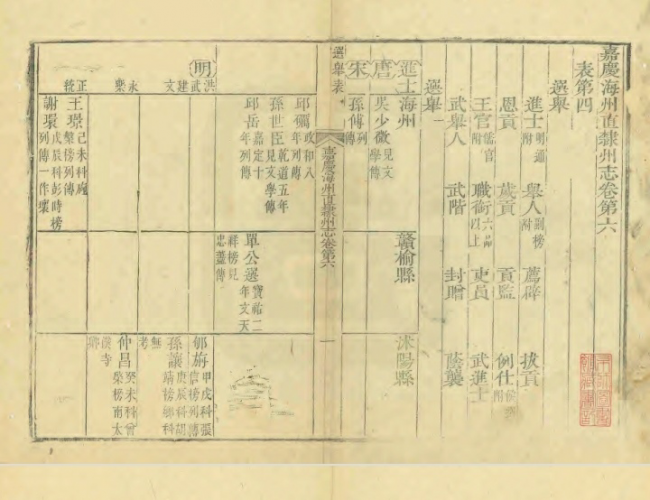 嘉慶海州直隸州志卷第六
表第四
選舉
進士 明通附 舉人 副榜附 薦辟 拔貢
恩貢 歲貢 貢監 例仕
王官 附 職銜 六品以上 吏員 武進士
武舉人 武階 封贈 蔭襲
選舉一
進士 海州 贛榆縣 沭陽縣
唐 吳少微 見文學傳
宋 孫傅 列傳
選舉表
嘉慶海州直隸州志卷第六
一
邱礪 政和八年列傳
孫世臣 乾道五年見文學傳
邱岳 嘉定十年列傳
單公選 寶祐二年文天祥榜見忠藎傳
明
洪武 建文 永樂 正統
郇旃 甲戌科張信榜列傳
孫讓 庚辰科胡靖榜鄉科無考
仲昌 癸未科曾棨榜南太僕寺
王璟 己未科施槃榜列傳
謝環 戊辰科彭時榜列傳一作瓌